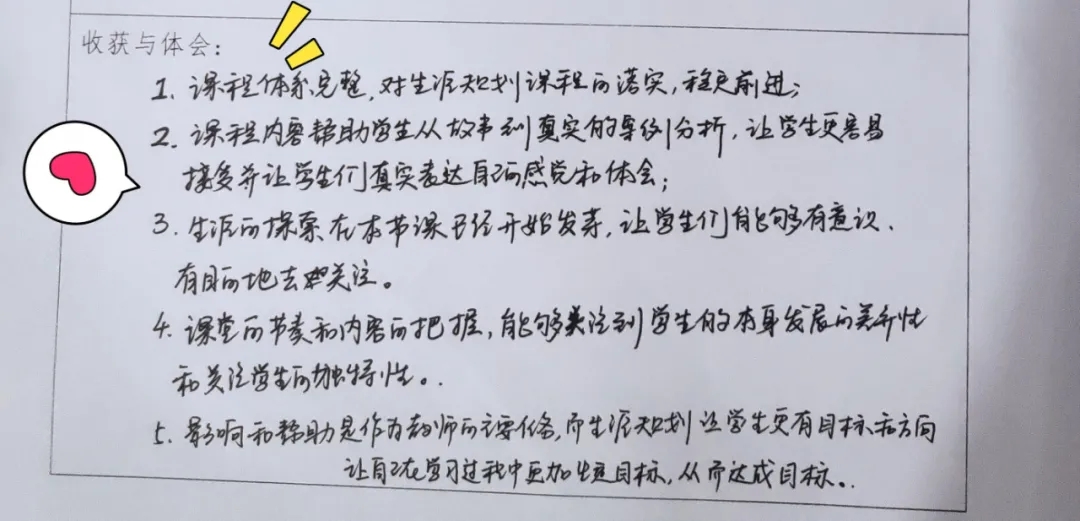 收获与体会：
1. 课程体系完整，对生涯规划课程的落实，稳定前进；
2. 课程内容帮助学生从故事到真实的案例分析，让学生更容易
接受并让学生们真实表达自己的感觉和体会；
3. 生涯的探索在本节课已经开始发芽，让学生们能够有意识、
有目的地去关注。
4. 课堂的节奏和内容的把握，能够关注到学生的本身发展的差异性
和关注学生的独特性。
5. 影响和帮助是作为教师的主要任务，而生涯规划让学生更有目标和方向
让自己在学习过程中更加生目标，从而达成目标。